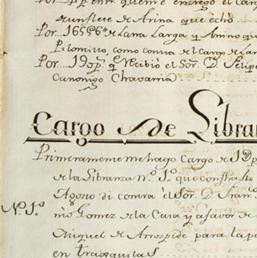 quien se entrego el Car
de un flete de Arina que echò
Por 165@6 de Lana Larga, y Annino que
Pilonillo, como consta del Cargo de Lan
Por 19op.s q.e Recibio el Sor. D. Felip
Canonigo Chavarria
Cargo de Libran
Primeramente me hago Cargo de
de la Libranza N.o 1.o que con fho de
Agosto di contra el Sor. D. Fran.co
N.o 1.o
mo Gomez de la Casa y a favor de
Miguel de Arrospide para la po
en trasquilas